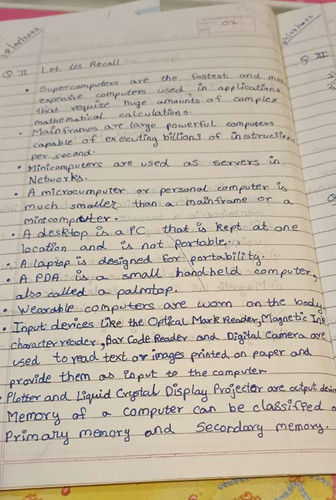 Q II. Let Us Recall
• Supercomputers are the fastest and most
expensive computers used in applications
that require huge amounts of complex
mathematical calculations.
• Mainframes are large powerful computers
capable of executing billions of instructions
per second.
• Minicomputers are used as servers in
Networks.
• A microcumputer or personal computer is
much smaller than a mainframe or a
minicomputer.
• A desktop is a PC that is kept at one
location and is not portable.
• A laptop is designed for portability.
• A PDA is a small handheld computer,
also called a palmtop.
• Wearable computers are worn on the body
• Input devices like the Optical Mark Reader, Magnetic Ink
charater reader, Bar Code Reader and Digital Camera are
used to read text or images printed on paper and
provide them as input to the computer
• Plotter and Liquid Crystal Display Projector are output
Memory of a computer can be classified
Primary memory and Secondary memory.